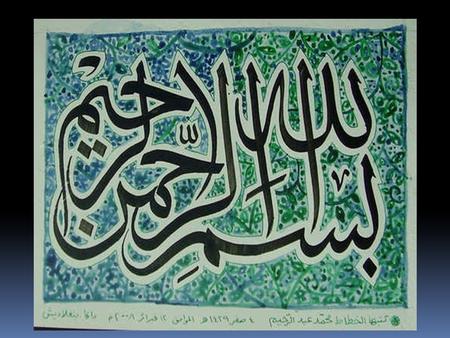 بسم الله الرحمن الرحيم
كتبها الخطاط محمد عبد الرحيم ٤ صفر ١٤٢٩ هـ الموافق ١٢ فبراير ٢٠٠٨ م داكا، بنغلاديش